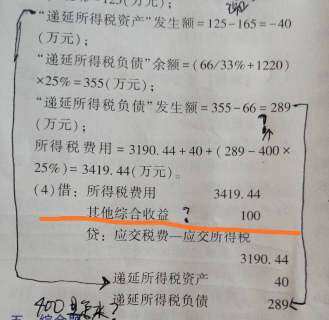 "递延所得税资产"发生额=125-165=-40
(万元);
"递延所得税负债"余额=(66/33%+1220)
×25%=355(万元);
"递延所得税负债"发生额=355-66=289
(万元);
?
所得税费用=3190.44+40+(289-400×
25%)=3419.44(万元)。
(4)借:所得税费用 3419.44
其他综合收益 ? 100
贷:应交税费—应交所得税
3190.44
递延所得税资产 40
递延所得税负债 289
400